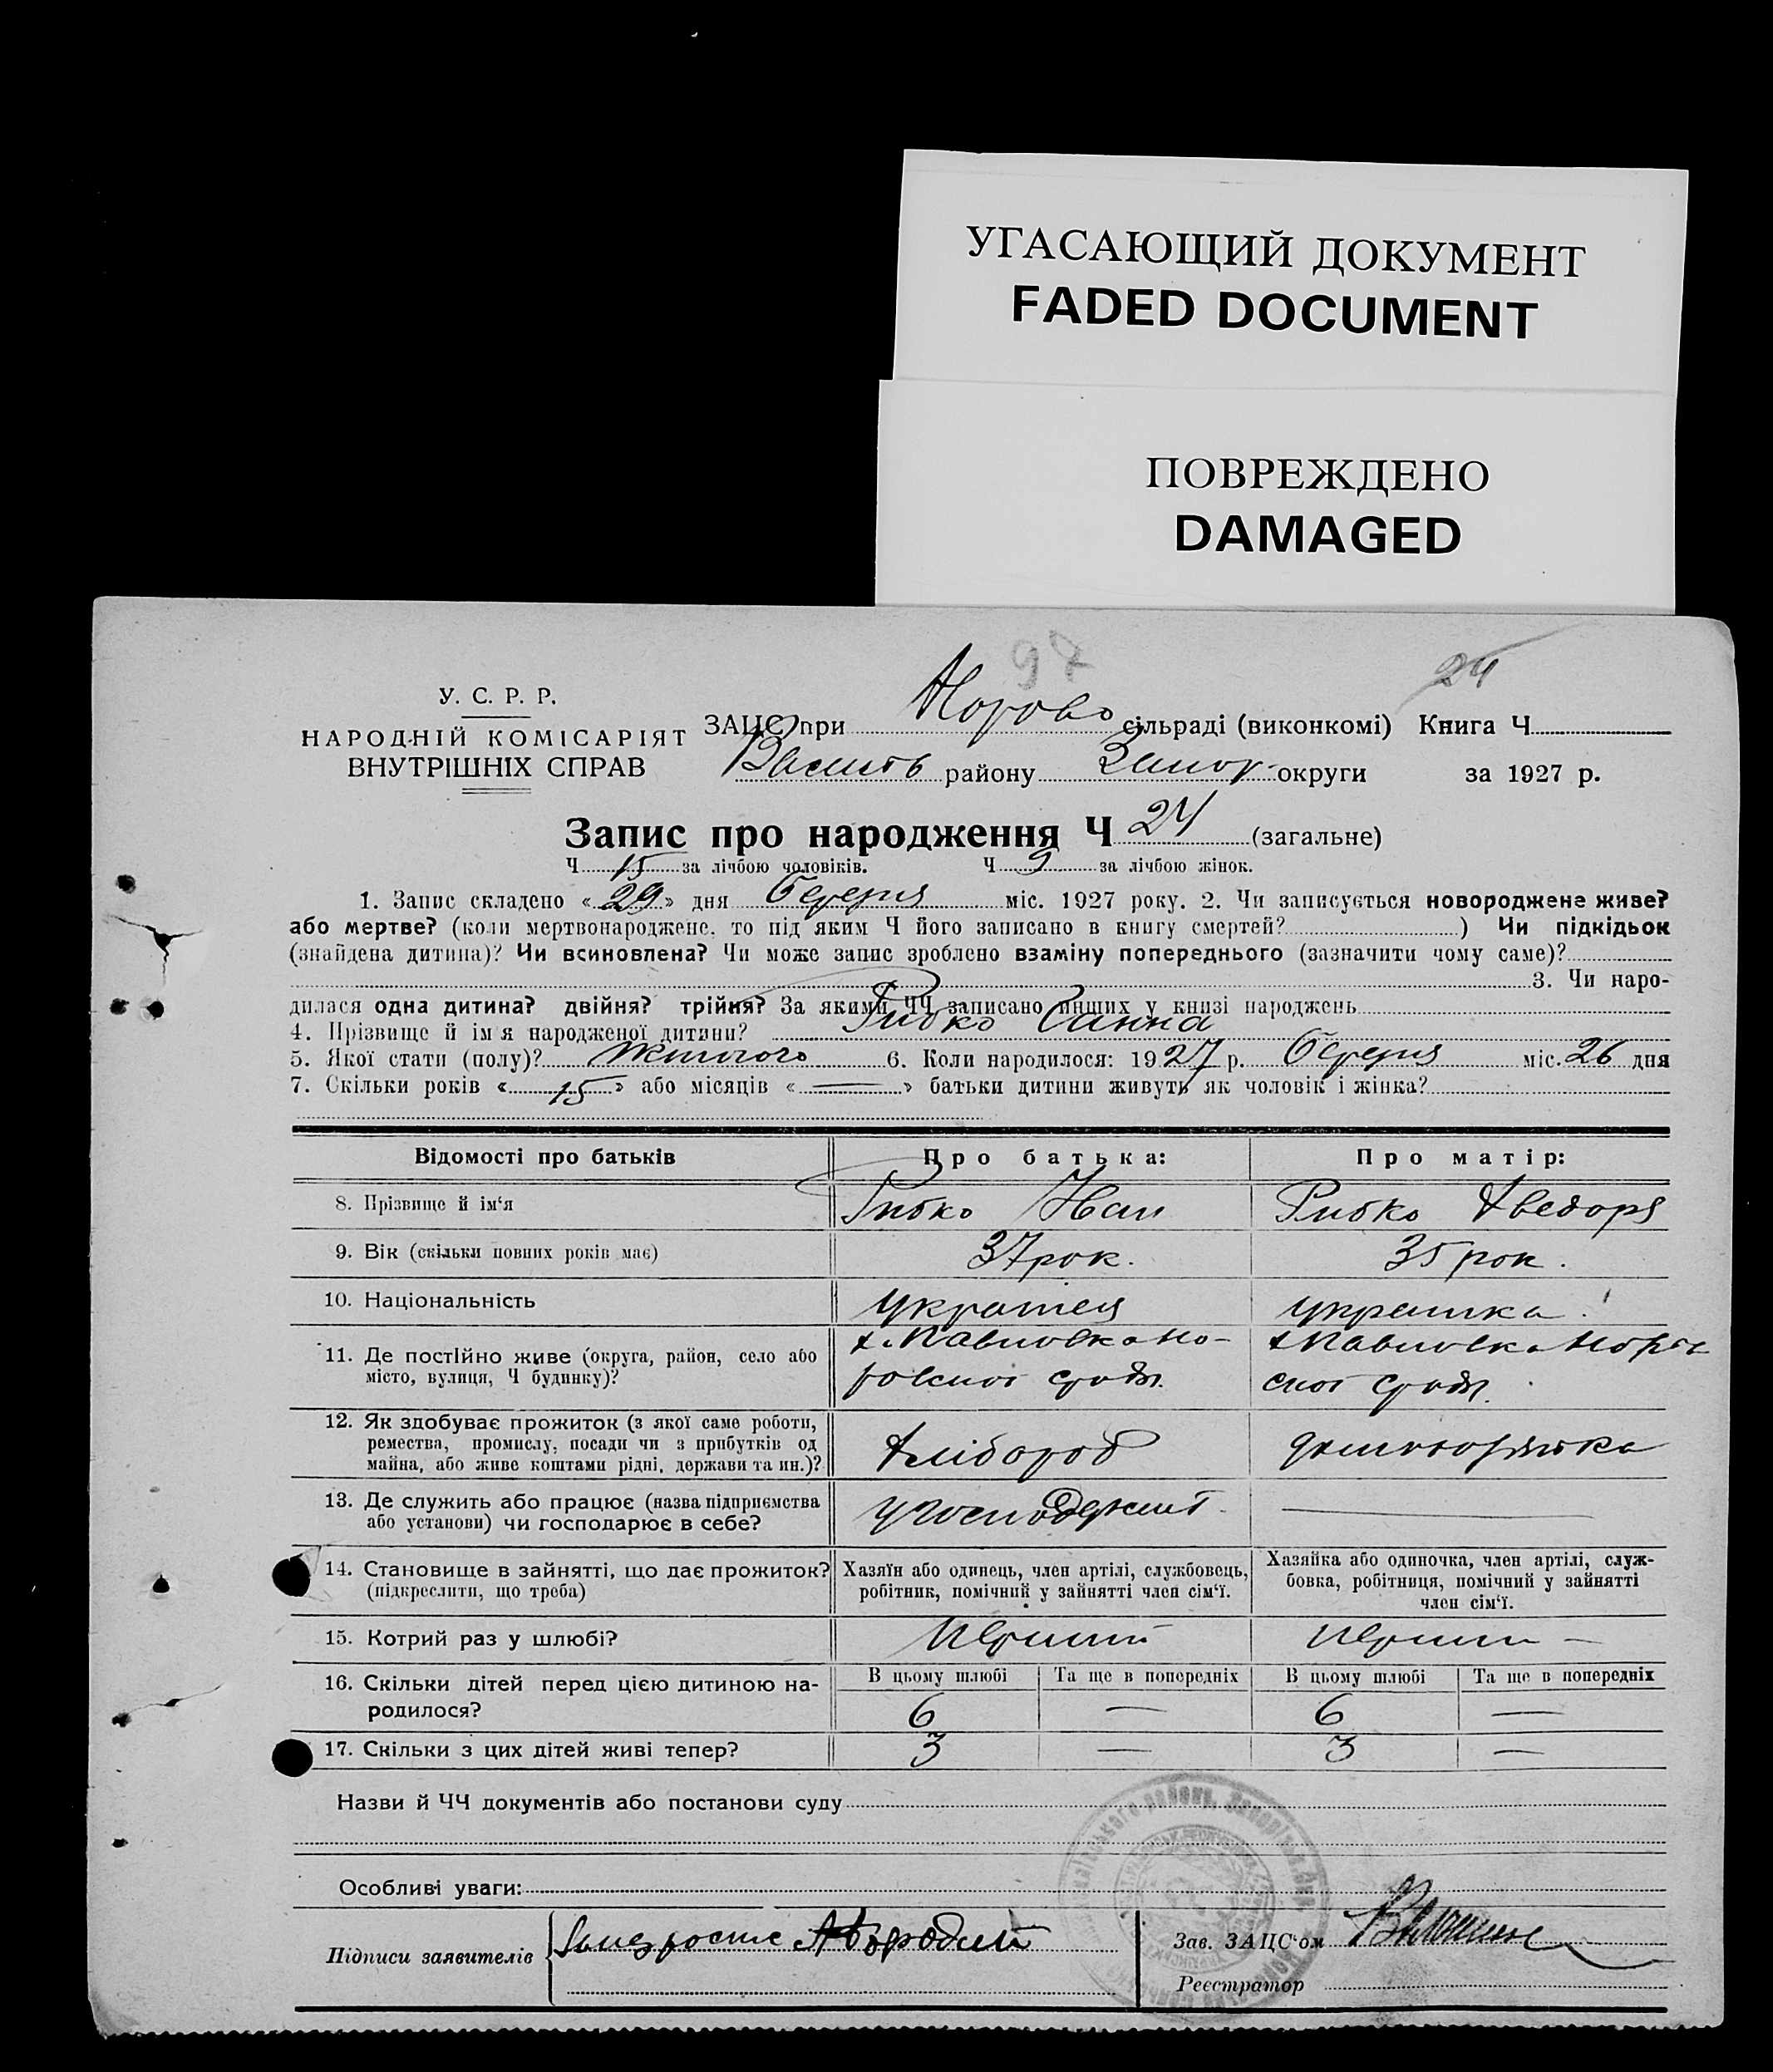 УГАСАЮЩИЙ ДОКУМЕНТ
FADED DOCUMENT
ПОВРЕЖДЕНО
DAMAGED
97
24
У. С. Р. Р.
НАРОДНІЙ КОМІСАРІЯТ
ВНУТРІШНІХ СПРАВ
ЗАЦС при сільраді (виконкомі) Книга Ч
району Запор. округи за 1927 р.
Запис про народження Ч 24 (загальне)
Ч 15 за лічбою чоловіків. Ч 9 за лічбою жінок.
1. Запис складено «29» дня березня міс. 1927 року. 2. Чи записується новороджене живе?
або мертве? (коли мертвонароджене, то під яким Ч його записано в книгу смертей? ) Чи підкідьок
(знайдена дитина)? Чи всиновлена? Чи може запис зроблено взаміну попереднього (зазначити чому саме)?
3. Чи наро-
дилася одна дитина? двійня? трійня? За якими ЧЧ записано инших у книзі народжень
4. Прізвище й імя народженої дитини? Рибко Ганна
5. Якої стати (полу)? жіночого 6. Коли народилося: 1927 р. березня міс. 26 дня
7. Скільки років «15» або місяців «—» батьки дитини живуть як чоловік і жінка?
Відомості про батьків Про батька: Про матір:
8. Прізвище й ім‘я Рибко Іван Рибко
9. Вік (скільки повних років має) 37 рок. 35 рок.
10. Національність українець українка
11. Де постійно живе (округа, район, село або х. Павловка Но- х Павловка
місто, вулиця, Ч будинку)? ровської сради. ської сради.
12. Як здобуває прожиток (з якої саме роботи,
ремества, промислу, посади чи з прибутків од хлібороб
майна, або живе коштами рідні, держави та ин.)?
13. Де служить або працює (назва підприємства —
або установи) чи господарює в себе?
14. Становище в зайнятті, що дає прожиток? Хазяїн або одинець, член артілі, службовець, Хазяйка або одиночка, член артілі, служ-
(підкреслити, що треба) робітник, помічний у зайнятті член сім‘ї. бовка, робітниця, помічний у зайнятті
член сім‘ї.
15. Котрий раз у шлюбі? перший перший —
16. Скільки дітей перед цією дитиною на- В цьому шлюбі Та ще в попередніх В цьому шлюбі Та ще в попередніх
родилося? 6 — 6 —
17. Скільки з цих дітей живі тепер? 3 — 3 —
Назви й ЧЧ документів або постанови суду
Особливі уваги:
Підписи заявителів
Зав. ЗАЦС‘ом
Реєстратор